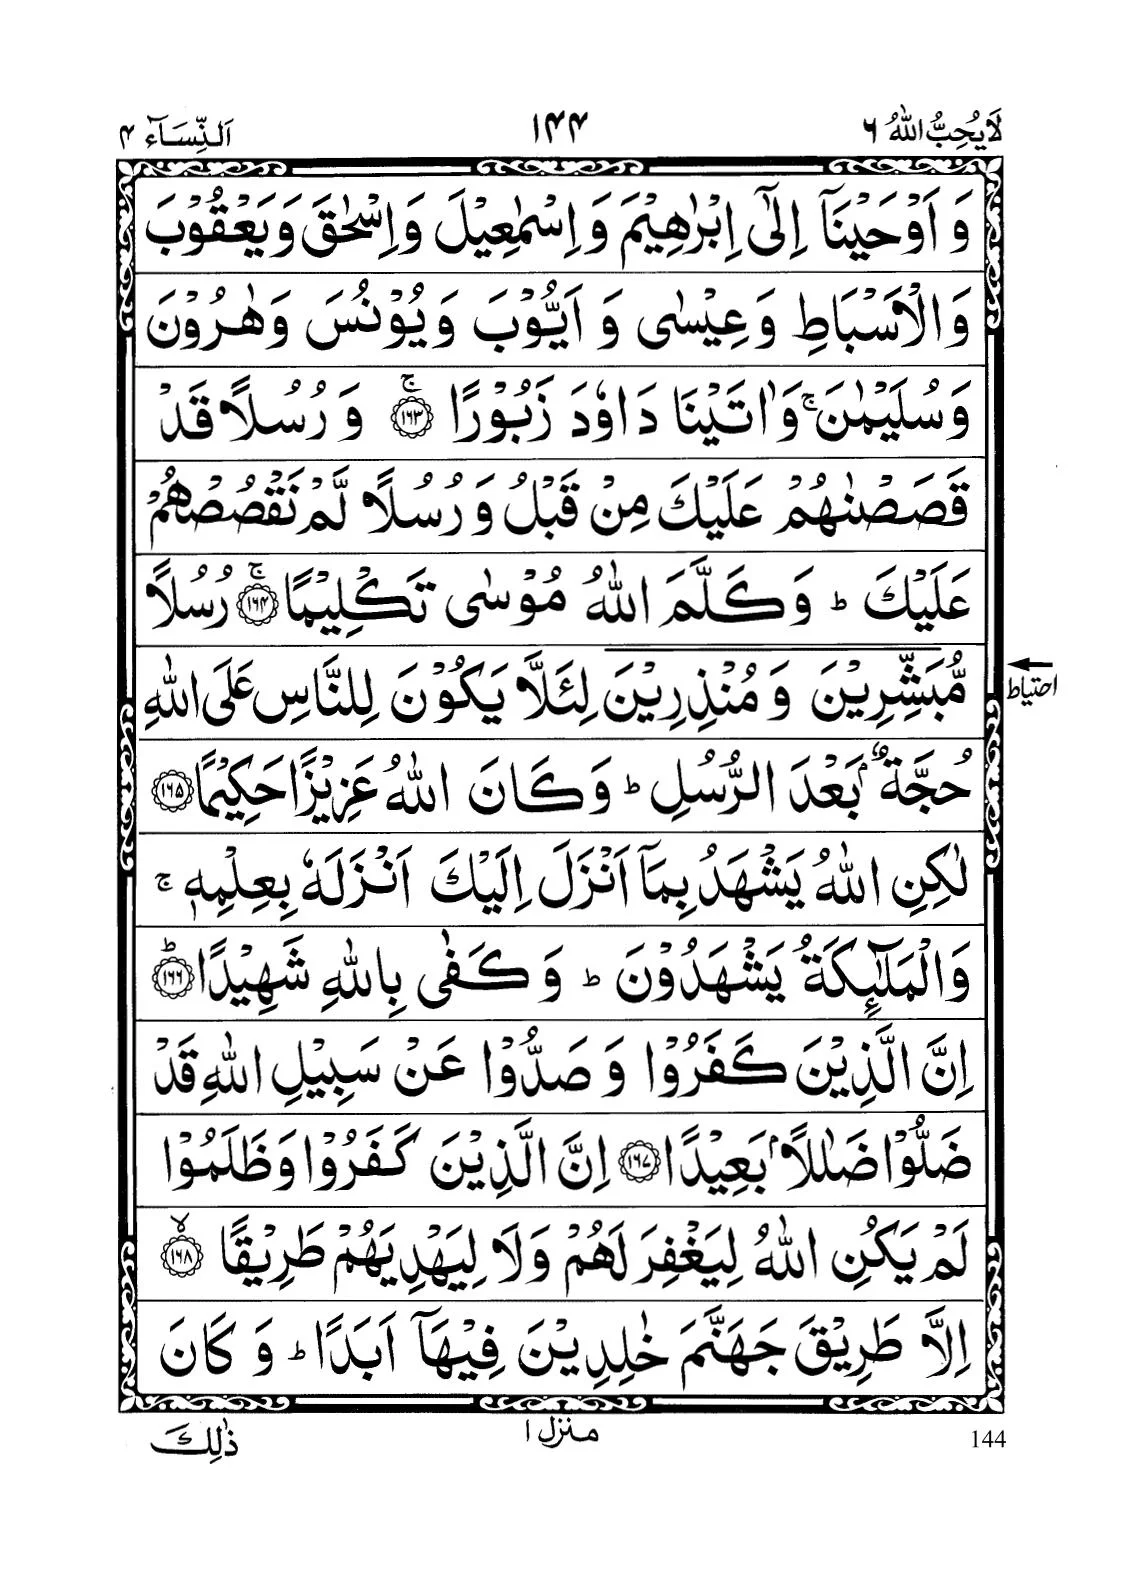 لَا یُحِبُّ اللّٰهُ ۶
۱۴۴
اَلنِّسَآء ۴
وَ اَوْحَیْنَاۤ اِلٰۤی اِبْرٰهِیْمَ وَ اِسْمٰعِیْلَ وَ اِسْحٰقَ وَ یَعْقُوْبَ
وَ الْاَسْبَاطِ وَ عِیْسٰی وَ اَیُّوْبَ وَ یُوْنُسَ وَ هٰرُوْنَ
وَ سُلَیْمٰنَ ۚ وَ اٰتَیْنَا دَاوٗدَ زَبُوْرًا ﴿۱۶۳﴾ۚ وَ رُسُلًا قَدْ
قَصَصْنٰهُمْ عَلَیْكَ مِنْ قَبْلُ وَ رُسُلًا لَّمْ نَقْصُصْهُمْ
عَلَیْكَ ؕ وَ كَلَّمَ اللّٰهُ مُوْسٰی تَكْلِیْمًا ﴿۱۶۴﴾ۚ رُسُلًا
مُّبَشِّرِیْنَ وَ مُنْذِرِیْنَ لِئَلَّا یَكُوْنَ لِلنَّاسِ عَلَی اللّٰهِ
احتیاط
حُجَّةٌۢ بَعْدَ الرُّسُلِ ؕ وَ كَانَ اللّٰهُ عَزِیْزًا حَكِیْمًا ﴿۱۶۵﴾
لٰكِنِ اللّٰهُ یَشْهَدُ بِمَاۤ اَنْزَلَ اِلَیْكَ اَنْزَلَهٗ بِعِلْمِهٖ ۚ
وَ الْمَلٰٓىِٕكَةُ یَشْهَدُوْنَ ؕ وَ كَفٰی بِاللّٰهِ شَهِیْدًا ﴿۱۶۶﴾ؕ
اِنَّ الَّذِیْنَ كَفَرُوْا وَ صَدُّوْا عَنْ سَبِیْلِ اللّٰهِ قَدْ
ضَلُّوْا ضَلٰلًۢا بَعِیْدًا ﴿۱۶۷﴾ اِنَّ الَّذِیْنَ كَفَرُوْا وَ ظَلَمُوْا
لَمْ یَكُنِ اللّٰهُ لِیَغْفِرَ لَهُمْ وَ لَا لِیَهْدِیَهُمْ طَرِیْقًا ﴿۱۶۸﴾ۙ
اِلَّا طَرِیْقَ جَهَنَّمَ خٰلِدِیْنَ فِیْهَاۤ اَبَدًا ؕ وَ كَانَ
144
منزل ۱
ذٰلِكَ